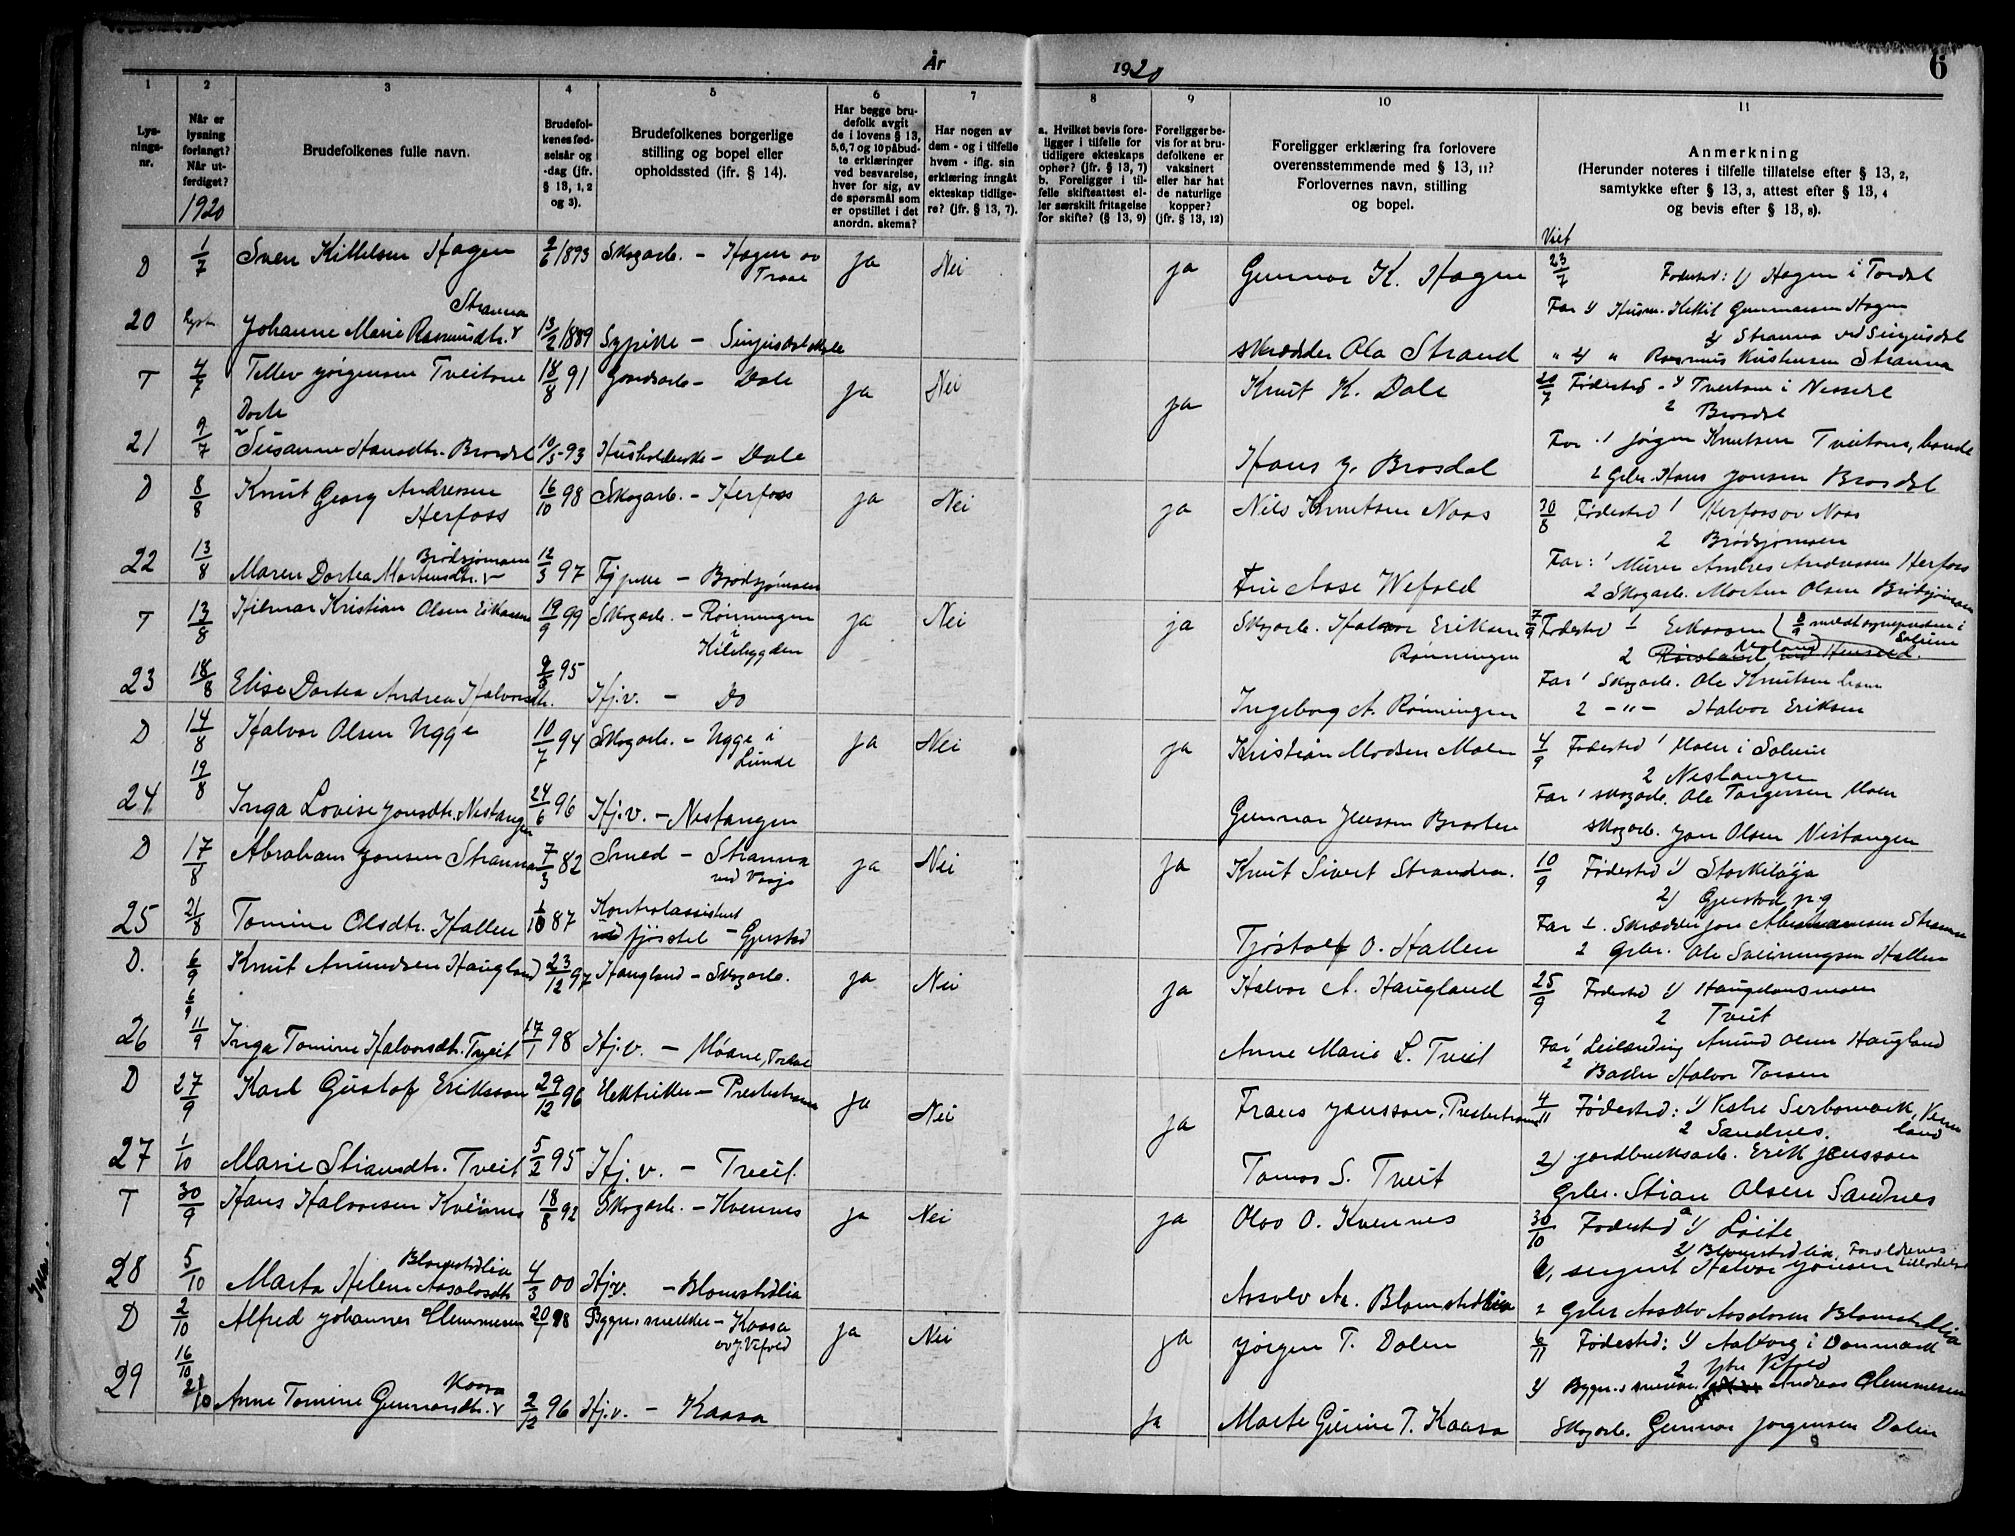 År 1920
6
1 2 3 4 5 6 7 8 9 10 11
Lysnings-nr.
Når er lysning forlangt? Når utferdiget?
1920
Brudefolkenes fulle navn.
Brudefolkenes fødselsår og -dag (jfr. § 13, 1, 2 og 3).
Brudefolkenes borgerlige stilling og bopel eller opholdssted (ifr. § 14).
Har begge brudefolk avgit de i lovens § 13, 5, 6, 7 og 10 påbudte erklæringer ved besvarelse, hver for sig, av de spørsmål som er opstillet i det anordn. skema?
Har nogen av dem - og i tilfelle hvem - iflg. sin erklæring inngåt ekteskap tidligere? (jfr. § 13, 7).
a. Hvilket bevis foreligger i tilfelle for tidligere ekteskaps ophør? (jfr. § 13, 7) b. Foreligger i tilfelle skifteattest eller særskilt fritagelse for skifte? (§ 13, 9)
Foreligger bevis for at brudefolkene er vaksinert eller har hat de naturlige kopper? (jfr. § 13, 12)
Foreligger erklæring fra forlovere overensstemmende med § 13, 11? Forlovernes navn, stilling og bopel.
Anmerkning (Herunder noteres i tilfelle tillatelse efter § 13, 2, samtykke efter § 13, 3, attest efter § 13, 4 og bevis efter § 13, 8).
Viet
D 1/7 Sven Kittelsen Hagen 2/6 1893 Skogarb. - Hagen av Traae ja Nei ja Gunnar K. Hagen 23/7 Fødested: 1) Hagen i Tordal
Far 1) Husm. Kittil Gunnarsen Hagen
20 Johanne Marie Rasmusdtr. Stranna 13/2 1889 Sypike - skrædder Ola Strand
2) Stranna
" 2) " Rasmus Kristensen Stranna
T 4/7 Tellev Jørgensen Tveitane 18/8 91 Jordarb. - Dale ja Nei ja Knut K. Dale 20/7 Fødested - 1) Tveitane i
2 Brosdal
21 9/7 Susanne Hansdtr. Brosdal 10/5 93 Husholderske - Dale Hans J. Brosdal
Far 1 Jørgen Knutsen Tveitane, bonde
2 Gbr. Hans Jonsen Brosdal
D 8/8 Knut Georg Andreasen Herfoss 16/10 98 Skogarb. - Herfoss ja Nei ja Nils Knutsen Naas 30/8 Fødested 1 Herfoss
2 Brødsjømoen
22 13/8 Maren Dortea Mortensdtr. Brødsjømoen 12/3 97 - Brødsjømoen Fru Aase Wefald
Far: 1 Murer Andres Andreasen Herfoss
2 Skogarb. Morten Olsen Brødsjømoen
T 13/8 Hilmar Kristian Olsen Eikaasen 19/9 99 Skogarb. - Rønningen i Kilebygden ja Nei ja Skogarb. Halvor Eriksen Rønningen 7/9 Fødested 1 Eikaasen
23 18/8 Elise Dortea Andrea Halvorsdtr. 9/3 95 Hj.v. - Do Ingeborg A. Rønningen
Far 1 Skogarb. Ole Knutsen
2 - " - Halvor Eriksen
D 14/8 Halvor Olsen Ugge 10/7 94 Skogarb. - Ugge i Lunde ja Nei ja Kristian Madsen Moen 4/9 Fødested 1 Moen i Solum
2 Nestangen
24 19/8 Inga Lovise Jonsdtr. Nestangen 24/6 96 Hj.v. - Nestangen Gunnar Jensen Braaten
Far 1 skogarb. Ole Torgersen Moen
skogarb. Jon Olsen Nestangen
D 17/8 Abraham Jonsen Stranna 7/3 82 Smed - Stranna ja Nei ja Knut Sivert Strandra. 10/9 Fødested 1)
2) Gjustad p.g
25 21/8 Tomine Olsdtr. Hallen 1/10 87 Kontrolassistent - Gjustad Tjøstolf O. Hallen
Far 1. Skrædder Jon Abrahamsen Stranna
2 Gbr. Ole Sveinungsen Hallen
D. 6/9 Knut Anundsen Haugland 23/12 97 Haugland - Skogarb. ja Nei ja Halvor A. Haugland 25/9 Fødested 1) Hauglandsmoen
2 Tveit
26 11/9 Inga Tomine Halvorsdtr. Tveit 17/1 98 Hj.v. - Moane, Tordal Anne Marie L. Tveit
Far 1 Leilænding Anund Olsen Haugland
2 Halvor Torsen
D 27/9 Karl Gustaf Eriksson 29/12 96 Elektriker - Prestestranna ja Nei ja Frans Jansson, Prestestranna 4/11 Fødested: 1)
2 Sandnes.
27 1/10 Marie Stiansdtr. Tveit 5/2 95 Hj.v. - Tveit. Tomas S. Tveit
2) Jordbruksarb. Erik Jensson
Gbr. Stian Olsen Sandnes
T 30/9 Hans Halvorsen Kvennes 18/8 92 Skogarb. - Kvennes ja Nei ja Olav O. Kvennes 30/10 Fødested 1)
2) Blomstødlia, Forældrenes
28 5/10 Marta Helene Aasolvsdtr. Blomstødlia 4/3 00 Hj.v. - Blomstødlia Aasolv Aa. Blomstødlia
1, Halvor Jonsen
2 Gbr Aasolv Aasolvsen Blomstødlia
D 2/10 Alfred Johannes Clemmesen 20/7 98 Bygn.snedker - Kaasa ja Nei ja Jørgen T. Dalen 6/11 Fødested: 1) Aalborg i Danmark
2 Ytre Vefald
29 16/10 Anne Tomine Gunnarsdtr. Kaasa 2/12 96 Hj.v. - Kaasa Ja Marte Gurine T. Kaasa
1) Bygn.s Andreas Clemmesen
Skogarb. Gunnar Jørgensen Dalen